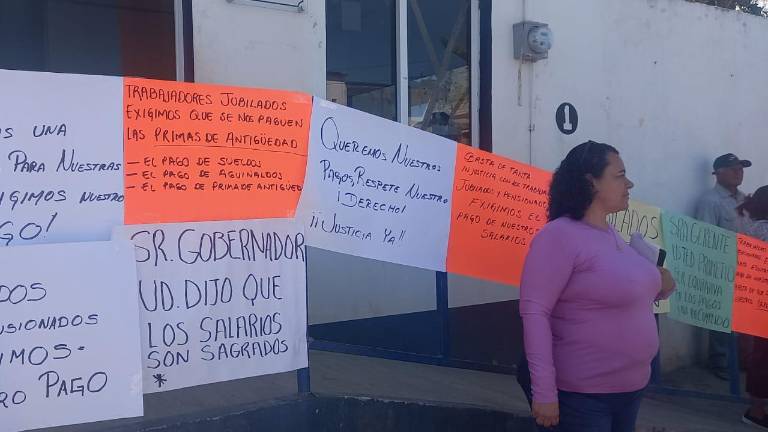 UNA
PARA NUESTRAS
EXIGIMOS NUESTRO
PAGO!
TRABAJADORES JUBILADOS
EXIGIMOS QUE SE NOS PAGUEN
LAS PRIMAS DE ANTIGÜEDAD
- EL PAGO DE SUELDOS
- EL PAGO DE AGUINALDOS
- EL PAGO DE PRIMA DE ANTIGÜE
QUEREMOS NUESTROS
PAGOS, RESPETE NUESTRO
¡DERECHO!
¡¡JUSTICIA YA!!
BASTA DE TANTA
INJUSTICIA CON LOS TRABAJ
JUBILADOS Y PENSIONADOS
EXIGIMOS EL
PAGO DE NUESTROS
SALARIOS
SR. GOBERNADOR
UD. DIJO QUE
LOS SALARIOS
SON SAGRADOS
PENSIONADOS
PAGO
SR. GERENTE
UD TED PROMETIO
EN LOS PAGOS
1